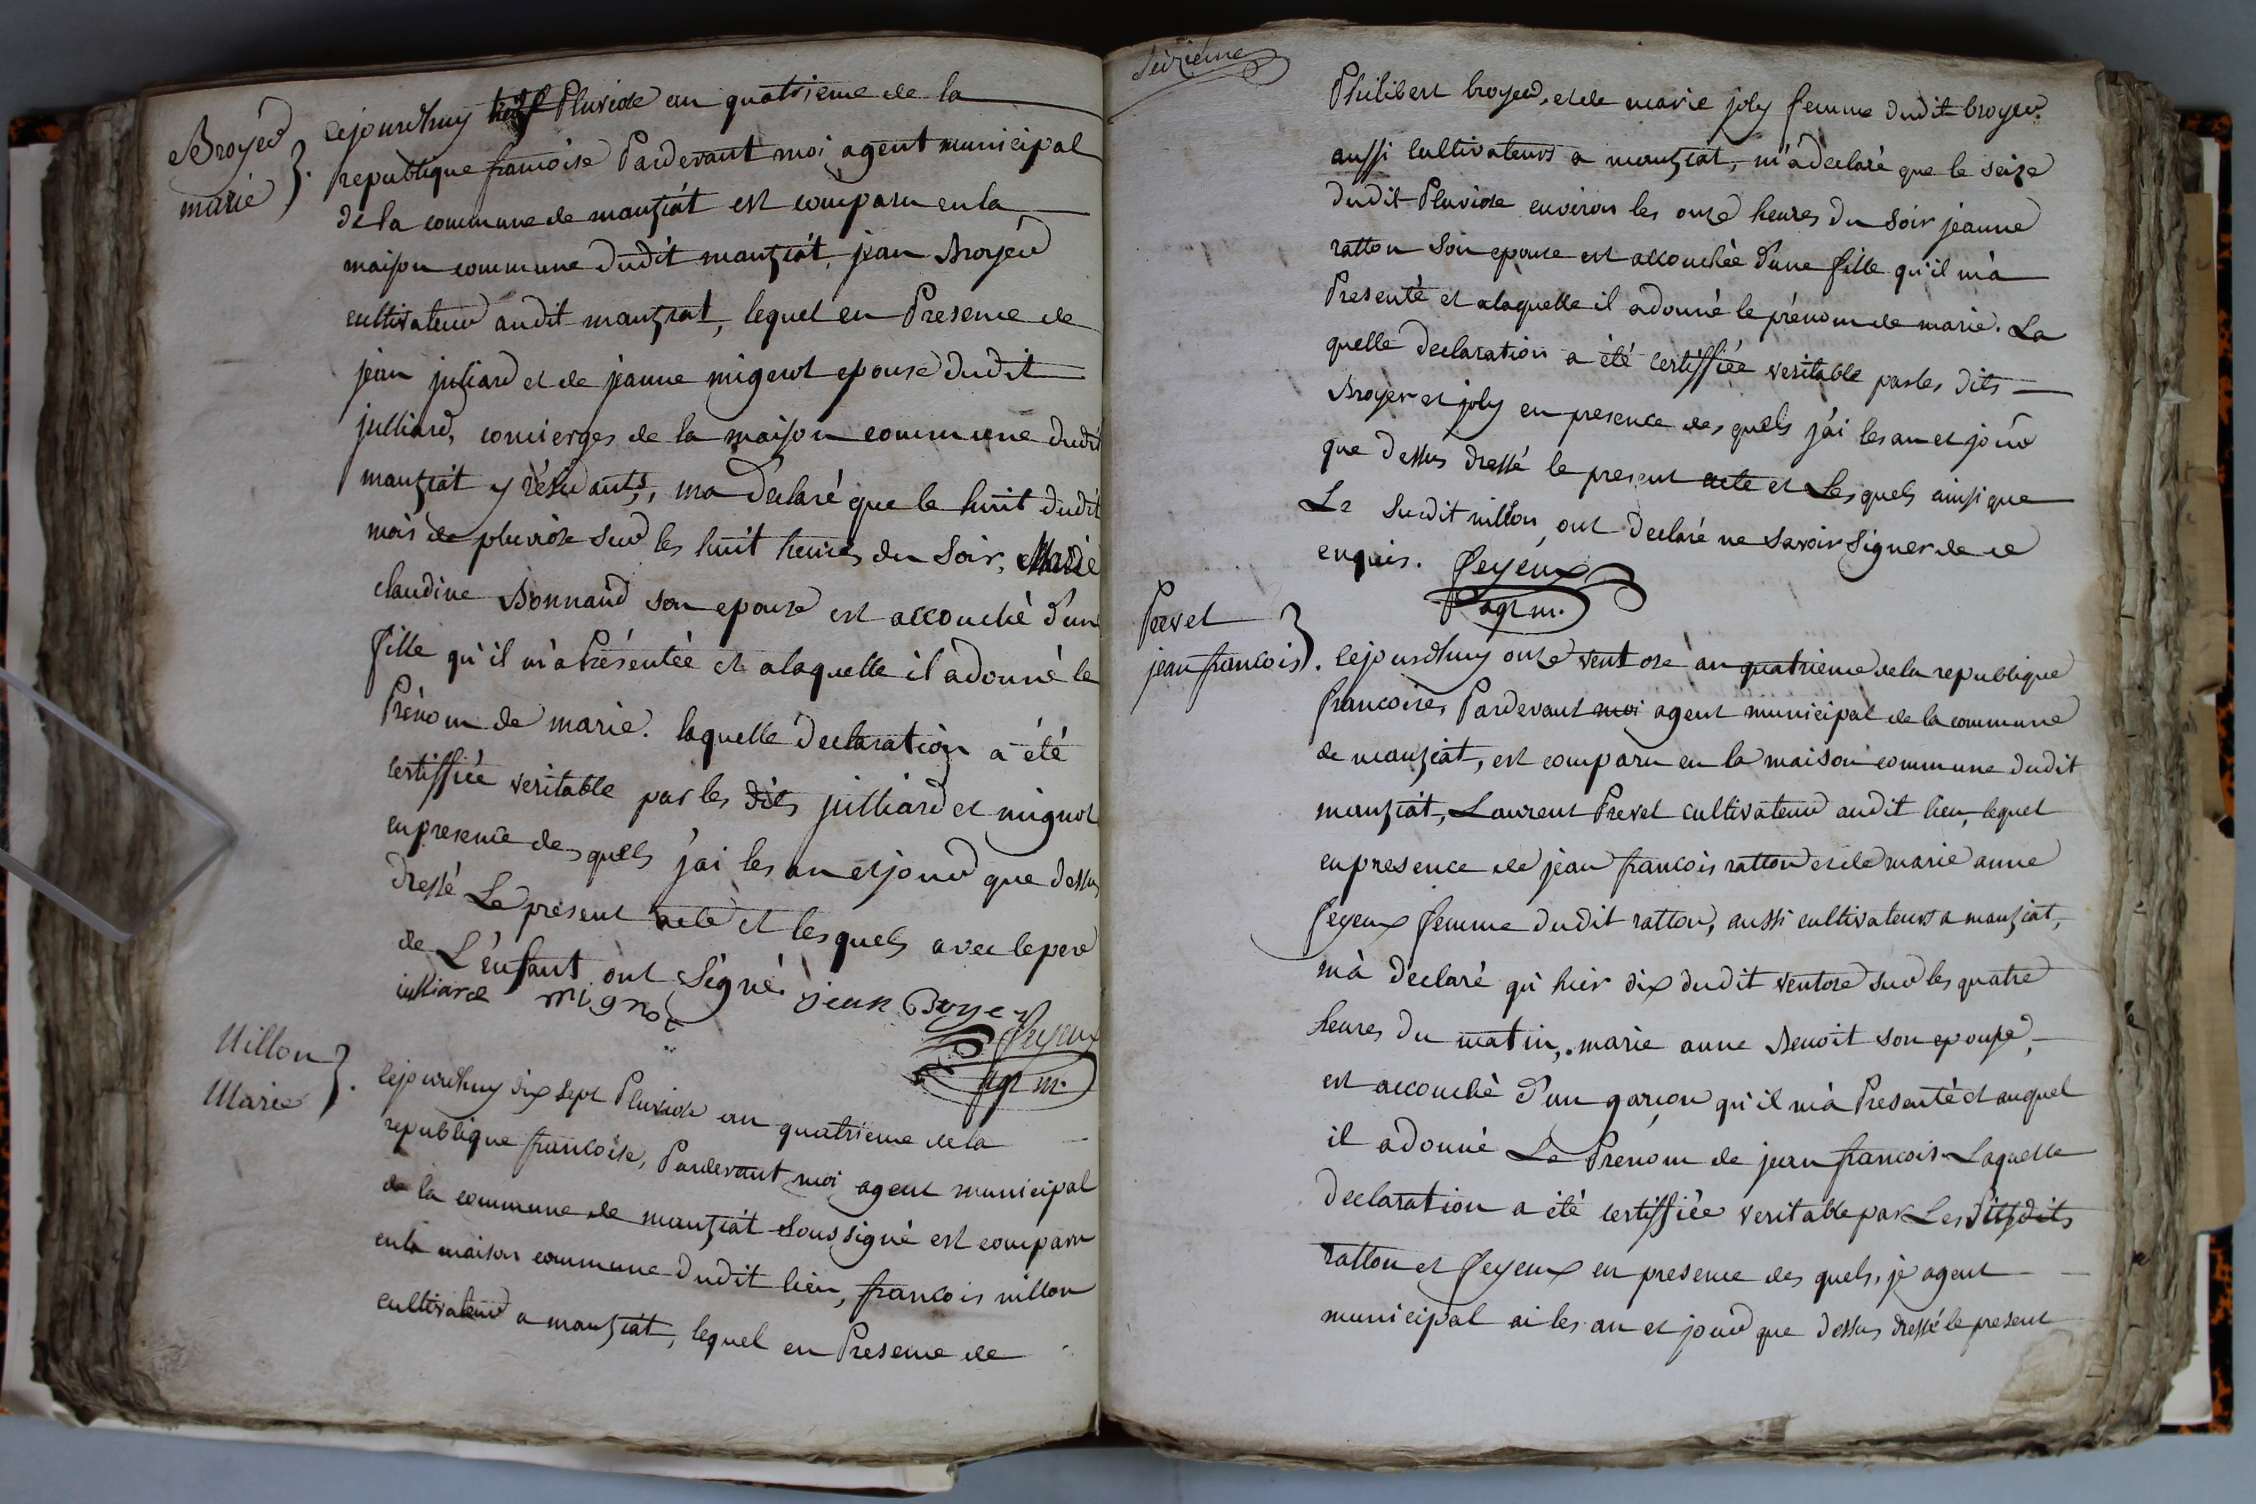 Broyer
marie
cejourdhuy neuf Pluviose an quatrieme de la
republique francoise Pardevant moi agent municipal
de la commune de manziat est comparu en la
maison commune dudit manziat, jean Broyer
cultivateur audit manziat, lequel en Presence de
jean juliard et de jeanne mignot epouse dudit
julliard, concierges de la maison commune dudit
manziat y résidants, m'a déclaré que le huit dudit
mois de pluviose sur les huit heures du soir, Marie
claudine Bonnard son epouse est accouché d'une
fille qu'il m'a Présentée et a laquelle il a donné le
Prénom de marie. laquelle déclaration a été
certiffiée veritable par les dits julliard et mignot
en presence desquels j'ai les an et jour que dessus
dressé Le présent acte et lesquels avec le pere
de L'enfant ont signé.
julliard mignot jean Broyer
feyeux
agt m.
Nillon
Marie
cejourdhuy dix sept Pluviose an quatrieme de la
republique francoise, Pardevant moi agent municipal
de la commune de manziat soussigné est comparu
en la maison commune dudit lieu, francois nillon
cultivateur a manziat, lequel en Presence de
seizieme
Philibert broyer, et de marie joly femme dudit broyer
aussi cultivateurs a manziat, m'a declaré que le seize
dudit Pluviose environ les onze heures du soir jeanne
ratton son epouse est accouchée d'une fille qu'il m'a
Presenté et a laquelle il a donné le prénom de marie. La
quelle declaration a été certiffiée veritable par les dits
Broyer et joly en presence des quels j'ai les an et jour
que dessus dressé le present acte et Lesquels ainsi que
Le susdit nillon, ont declaré ne savoir signer de ce
enquis. feyeux
agt m.
Prevel
jean francois
cejourdhuy onze ventose an quatrieme de la republique
francoise, Pardevant moi agent municipal de la commune
de manziat, est comparu en la maison commune dudit
manziat, Laurent Prevel cultivateur audit lieu, lequel
en presence de jean francois ratton et de marie anne
feyeux femme dudit ratton, aussi cultivateurs a manziat,
m'a déclaré qu'hier dix dudit ventose sur les quatre
heures du matin, marie anne Benoit son epouse,
est accouché d'un garçon qu'il m'a Presenté et auquel
il a donné Le Prenom de jean francois. Laquelle
declaration a été certiffiée veritable par Les susdits
ratton et feyeux en presence des quels, je agent
municipal ai les an et jour que dessus dressé le present